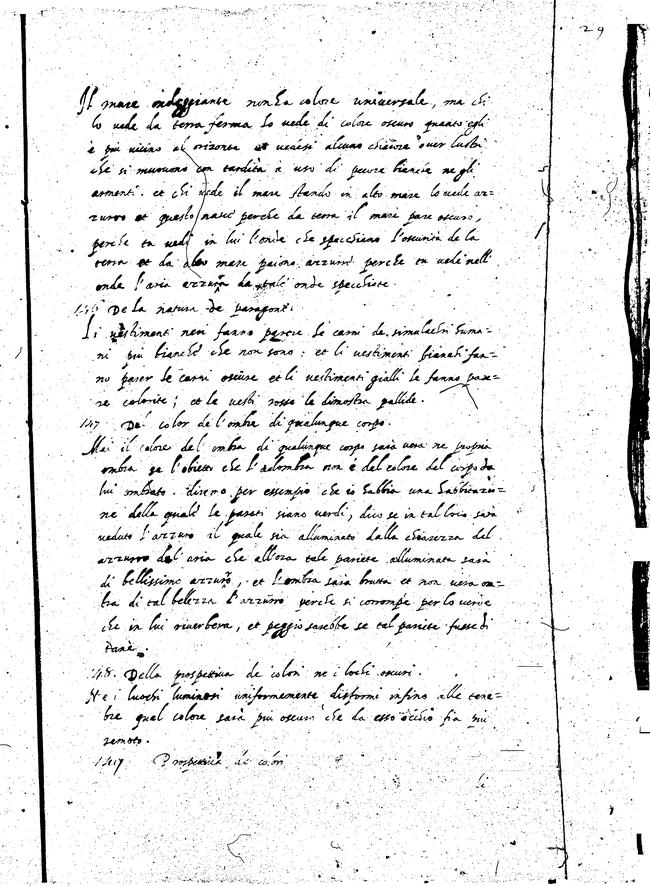 29
Il mare ondeggiante non ha colore universale, ma chi
lo vede da terra ferma lo vede di colore oscuro quanto egli
è più vicino al orizonte et vedesi alcuno chiarore over lustri
che si muovono con tardità a uso di pecore bianche negli
armenti. et chi vede il mare stando in alto mare lo vede az=
zurro et questo nasce perche da terra il mare pare oscuro,
perche tu vedi in lui l'onde che specchiano l'oscurità de la
terra et da alto mare paiono azzurre perche tu vedi nell'
onde l'aria azzurra da tale onde specchiate.
146 De la natura de paragoni.
Li vestimenti neri fanno parere le carni da simulachri huma=
ni più bianche che non sono: et li vestimenti bianchi fan=
no parer le carni oscure et li vestimenti gialli le fanno pare=
re colorite; et le vesti rosse le dimostra pallide.
147 Del color de l'ombra di qualunque corpo.
Mai il colore del ombra di qualunque corpo sarà vera ne propria
ombra se l'obietto che l'adombra non è del colore del corpo da
lui ombrato. diremo per essempio che io habbia una habbitazio=
ne della quale le pareti siano verdi, dico se in tal loco sarà
veduto l'azzuro il quale sia alluminato dalla chiarezza del
azzurro del'aria che all'ora tale pariete alluminata sarà
di bellissimo azzuro, et l'ombra sarà brutta et non vera om=
bra di tal bellezza d'azzurro perche si corrompe per lo verde
che in lui riverbera, et peggio sarebbe se tal pariete fusse di
tanè.
148. Della prospettiva de colori ne i lochi oscuri.
Ne i luochi luminosi uniformemente disformi infino alle tene=
bre quel colore sarà più oscuro che da esso occhio fia più
remoto.
149 Prospettiva de colori
li